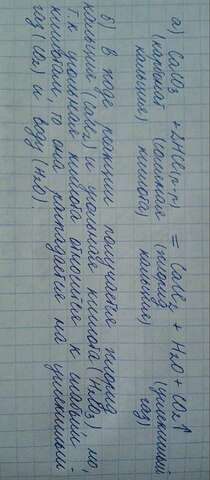 а) CaCO3 + 2HCl(р-р) = CaCl2 + H2O + CO2↑
(карбонат (соляная (хлорид (углекислый
кальция) кислота) кальция) газ)
б) В ходе реакции получается хлорид
кальция (CaCl2) и угольная кислота (H2CO3), но,
т.к угольная кислота относится к слабым
кислотам, то она распадается на углекислый
газ (CO2) и воду (H2O).